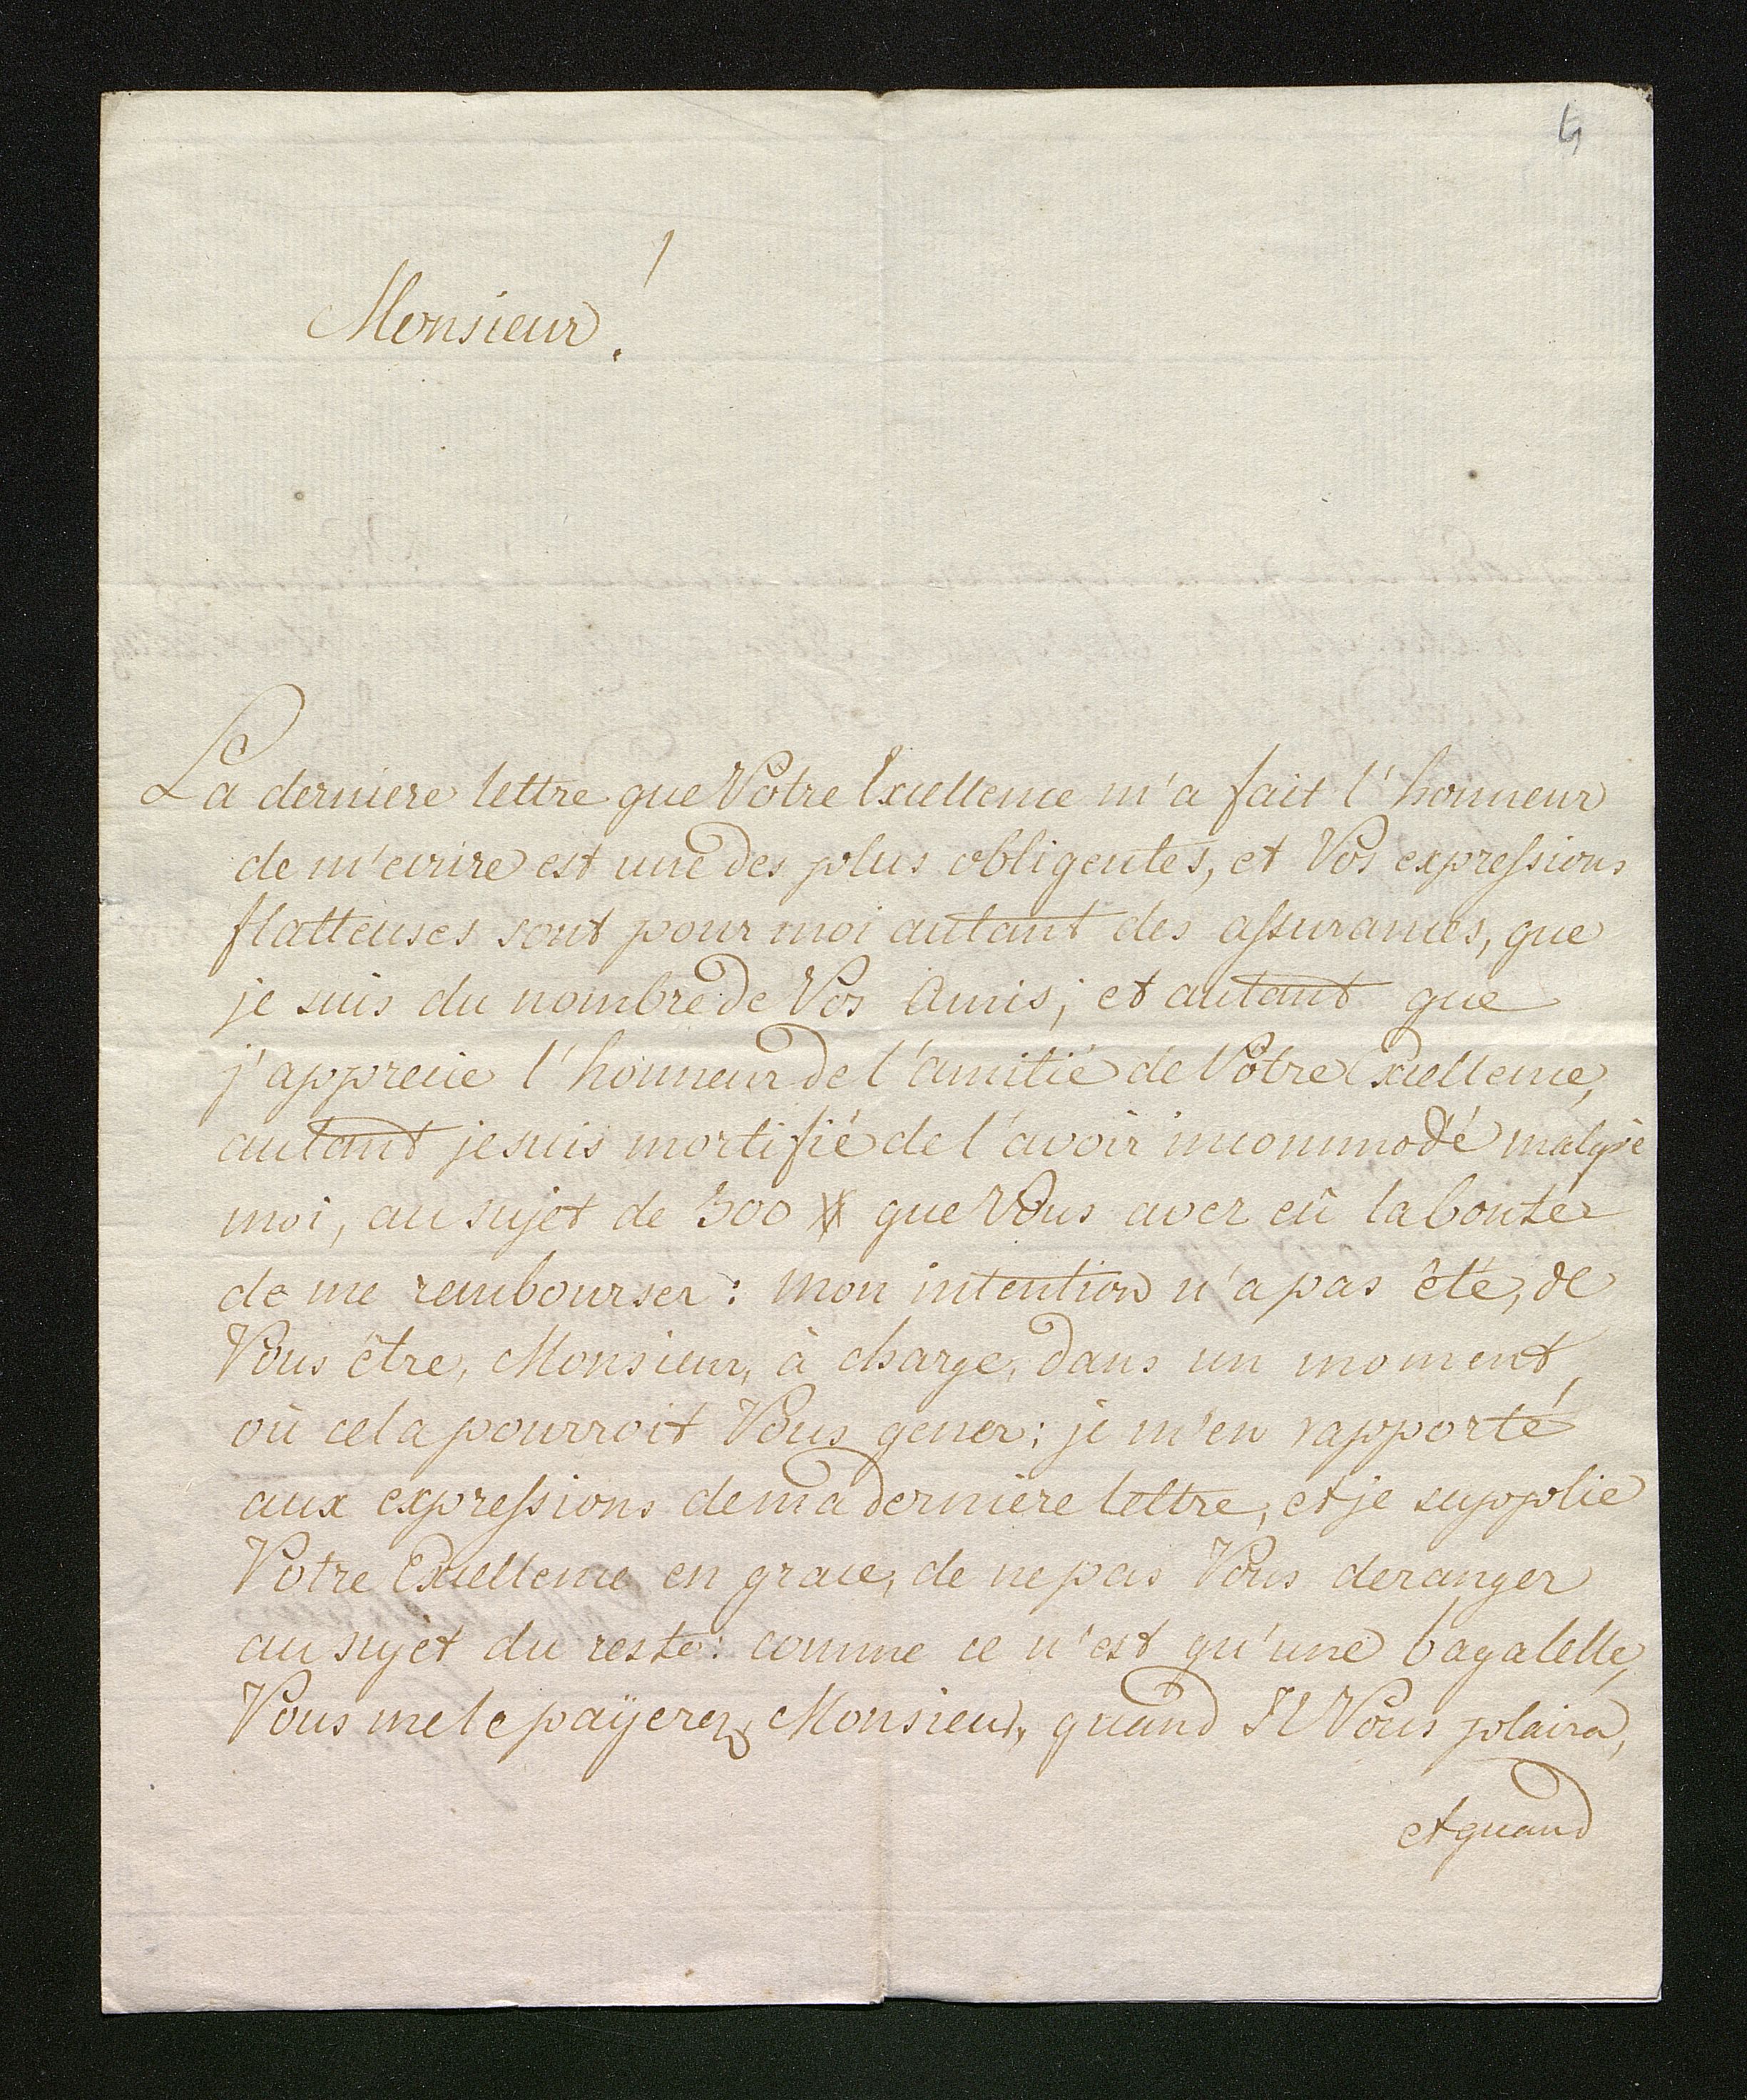 4
Monsieur!
La derniere lettre que Votre Excellence m'a fait l'honneur
de m'ecrire est une des plus obligentes, et Vos expressions
flatteuses sont pour moi autant des assurances, que
je suis du nombre de Vos Amis; et autant que
j'apprecie l'honneur de l'amitié de Votre Excellence,
autant je suis mortifié de l'avoir incommodé malgré
moi, au sujet de 300 # que Vous avez eû la bonté
de me rembourser: mon intention n'a pas été, de
Vous être, Monsieur, à charge, dans un moment,
où cela pourroit Vous gener: je m'en rapporte
aux expressions de ma derniere lettre, et je supplie
Votre Excellence en grace, de ne pas Vous deranger
au sujet du reste: comme ce n'est qu'une bagatelle,
Vous me le payerez, Monsieur, quand Il Vous plaira,
et quand